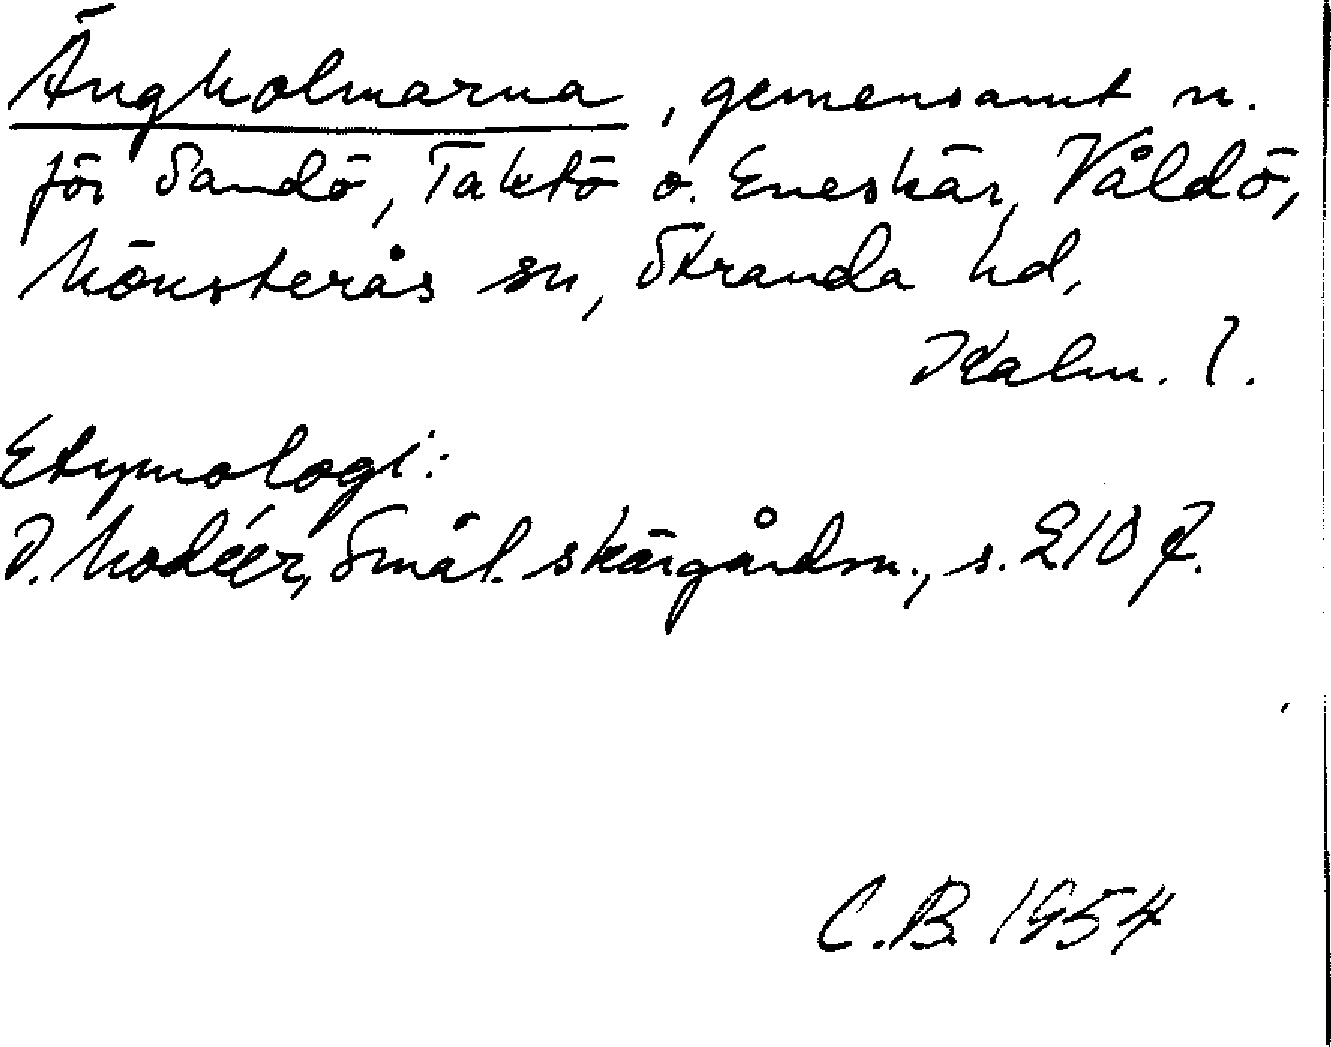 Ängholmarna, gemensamt n.
för Sandö, Taktö o. Eneskär, Våldö,
Mönsterås sn, Stranda hd,
Kalm. l.
Etymologi:
I. Modéer, Smål. skärgårdsn., s. 210 f.
C.B. 1954